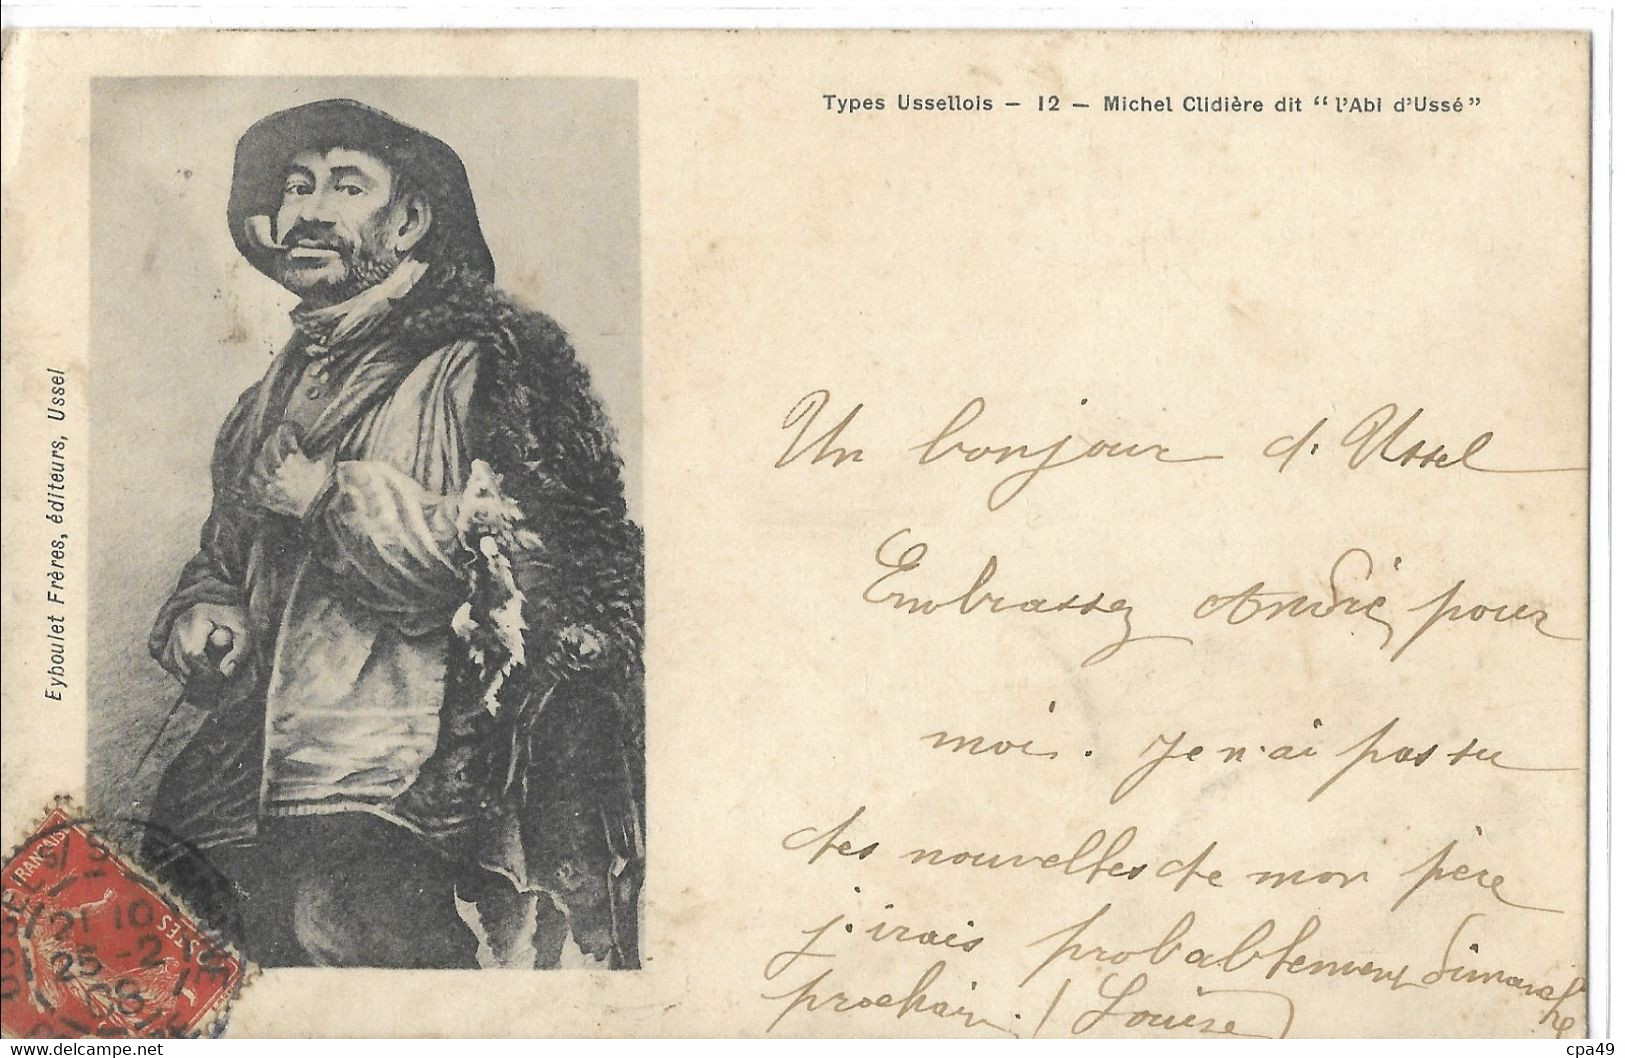 Types Ussellois — 12 — Michel Clidière dit “l'Abi d'Ussé”
Eyboulet Frères, éditeurs, Ussel
Un bonjour d'Ussel
Embrassez André pour
moi. Je n'ai pas su
des nouvelles de mon père
j'irais probablement dimanche
prochain. (Louise)
FRANÇAISE
POSTES
21 10
25 -2
08
www.delcampe.net
cpa49